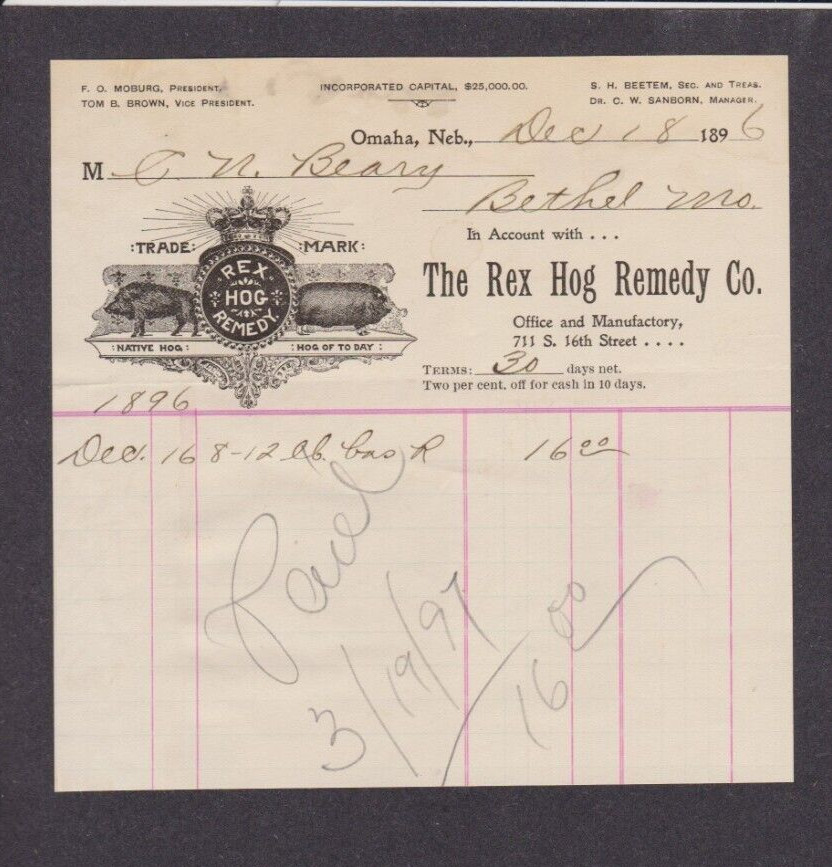 F. O. MOBURG, PRESIDENT.
TOM B. BROWN, VICE PRESIDENT.
INCORPORATED CAPITAL, $25,000.00.
S. H. BEETEM, SEC. AND TREAS.
DR. C. W. SANBORN, MANAGER.
Omaha, Neb., Dec 18 1896
M C. N. Beary
Bethel Mo.
:TRADE: :MARK:
REX
HOG
REMEDY.
:NATIVE HOG: :HOG OF TO DAY:
In Account with . . .
The Rex Hog Remedy Co.
Office and Manufactory,
711 S. 16th Street . . . .
TERMS: 30 days net.
Two per cent. off for cash in 10 days.
1896
Dec. 16 8-12 lb. R 16 00
Paid
3/19/97
16 00